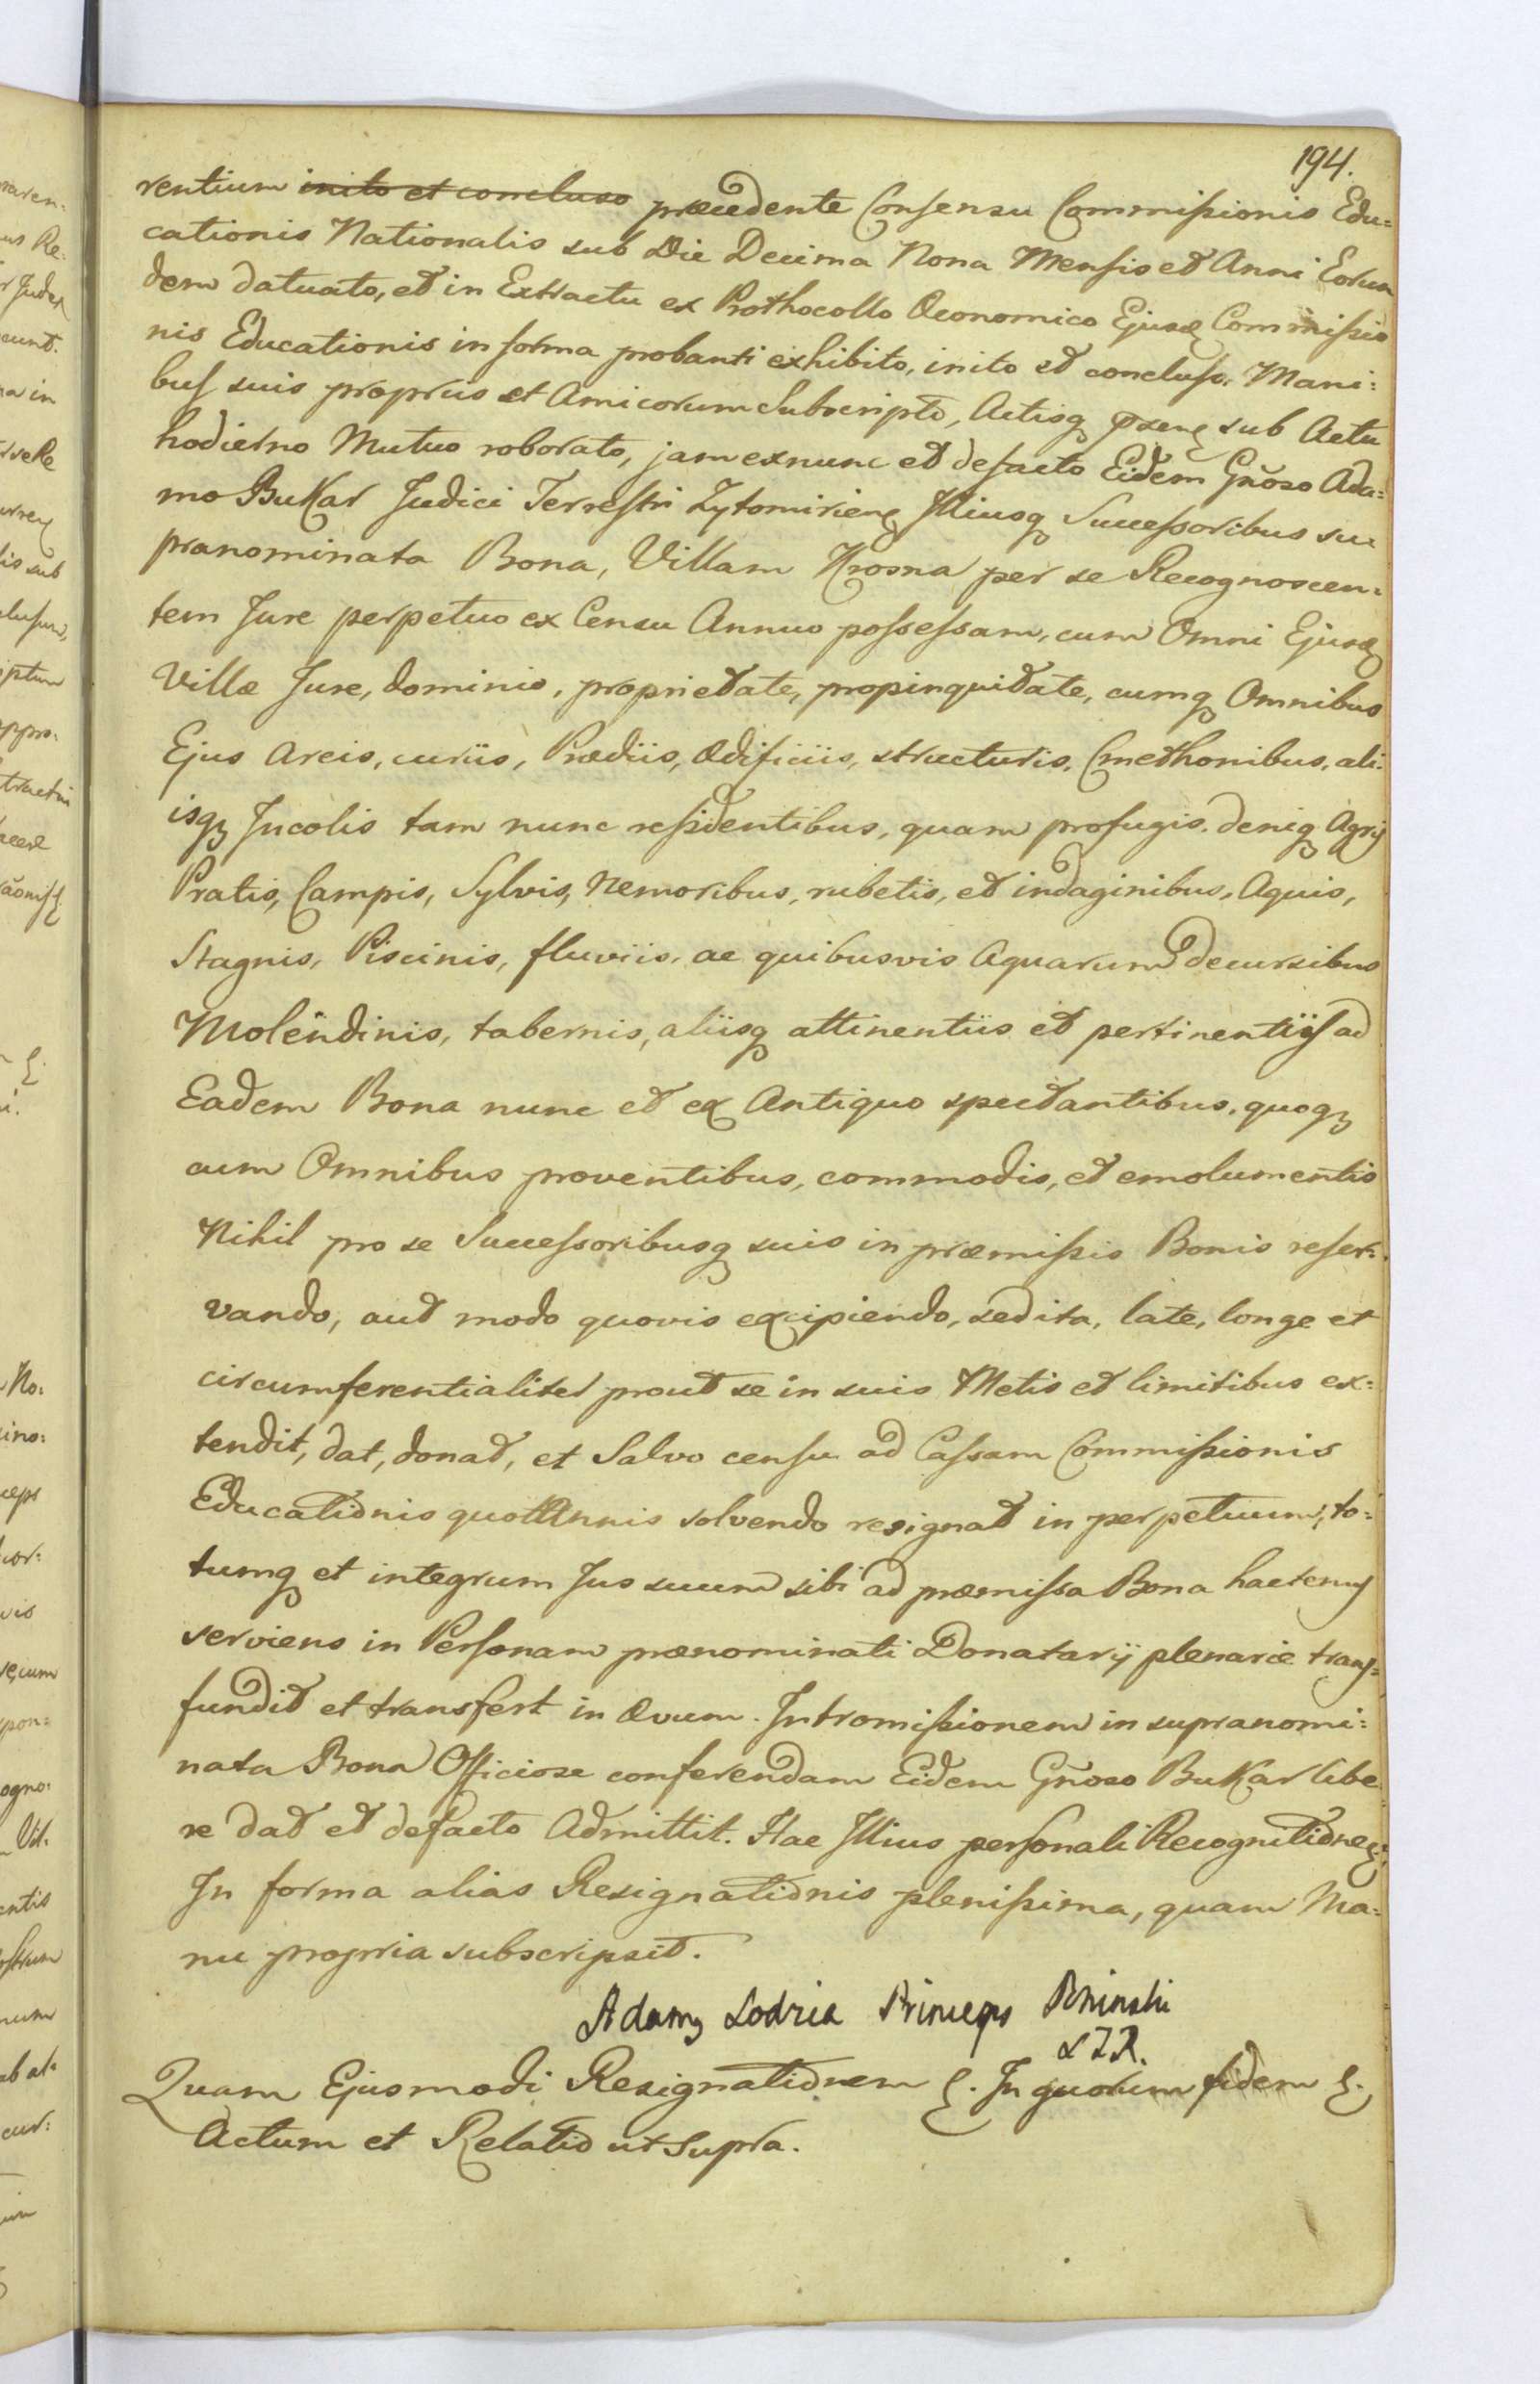 194.
rentium inito et concluso præcedente Consensu Commissionis Edu=
cationis Nationalis sub Die Decima Nona Mensis et Anni Eorun
dem datuato, et in Extractu ex Prothocollo Oeconomico Ejusd Commissio
nis Educationis in forma probanti exhibito, inito et concluso, Mani=
bus suis propriis et Amicorum Subscripto, Actisq præsenƺ sub Actu
hodierno Mutuo roborato, jam exnunc et defacto Eidem Gñoso Ada=
mo Bukar Judici Terrestri Zytomirienƺ Illiusq Successoribus su
pranominata Bona, Villam Krosna per se Recognoscen=
tem Jure perpetuo ex Censu Annuo possessam, cum Omni Ejusd
Villæ Jure, dominio, proprietate, propinquitate, cumq Omnibus
Ejus Areis, curiis, Prædiis, ædificiis, structuris, Cmethonibus, ali=
isq Incolis tam nunc residentibus, quam profugis. deniq Agris
Pratis, Campis, Sylvis, Nemoribus, rubetis, et indaginibus, Aquis,
Stagnis, Piscinis, fluviis, ac quibusvis Aquarum decursibus
Molendinis, tabernis, aliisq attinentiis et pertinentiis ad
Eadem Bona nunc et ex Antiquo spectantibus, quoq
cum Omnibus proventibus, commodis, et emolumentis
Nihil pro se Successoribusq suis in præmissis Bonis reser=
vando, aut modo quovis excipiendo, sed ita, late, longe et
circumferentialiter prout se in suis Metis et limitibus ex=
tendit, dat, donat, et Salvo censu ad Cassam Commissionis
Educationis quot Annis solvendo resignat in perpetuum, to=
tumq et integrum Jus suum sibi ad præmissa Bona hactenus
serviens in Personam prænominati Donatarij plenarie trans=
fundit et transfert in ævum. Intromissionem in supranomi=
nata Bona Officiose conferendam Eidem Gñoso Bukar libe
re dat et defacto Admittit. Hac Illius personali Recognitione
In forma alias Resignationis plenissima, quam Ma=
nu propria subscripsit.
Adam Lodzia Princeps Poninski
Quam Ejusmodi Resignationem &. In quorum fidem &.
Actum et Relatio ut Supra.